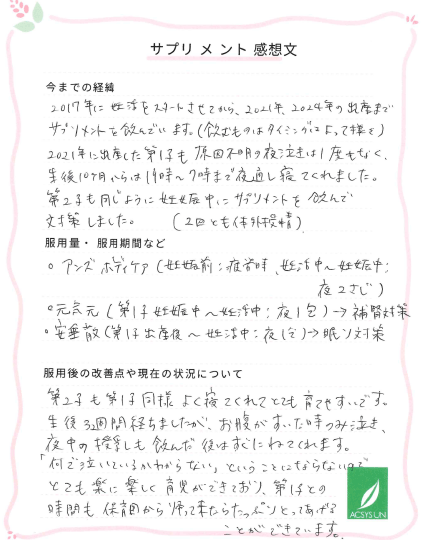 サプリメント感想文
今までの経緯
2017年に妊活をスタートさせてから、2021年、2024年の出産まで
サプリメントを飲んでいます。(飲むものはタイミングによって様々)
2021年に出産した第1子も原因不明の夜泣きは1度もなく、
生後10ヶ月からは19時〜7時まで夜通し寝てくれました。
第2子も同じように妊娠中にサプリメントを飲んで
対策しました。 (2回とも体外授精)
服用量・服用期間など
○ アンズボディケア(妊娠前:疲労時、妊活中〜妊娠中:
夜2さじ)
○元気元(第1子妊娠中〜妊活中:夜1包)→補腎対策
○安垂散(第1子出産後〜妊活中:夜1包)→眠り対策
服用後の改善点や現在の状況について
第2子も第1子同様よく寝てくれてとても育てやすいです。
生後3週間経ちましたが、お腹がすいた時のみ泣き、
夜中の授乳も飲んだ後はすぐにねてくれます。
「何で泣いているかわからない」ということにならないので
とても楽に楽しく育児ができており、第1子との
時間も保育園から帰って来たらたっぷりとってあげる
ことができています。
ACSYS UN